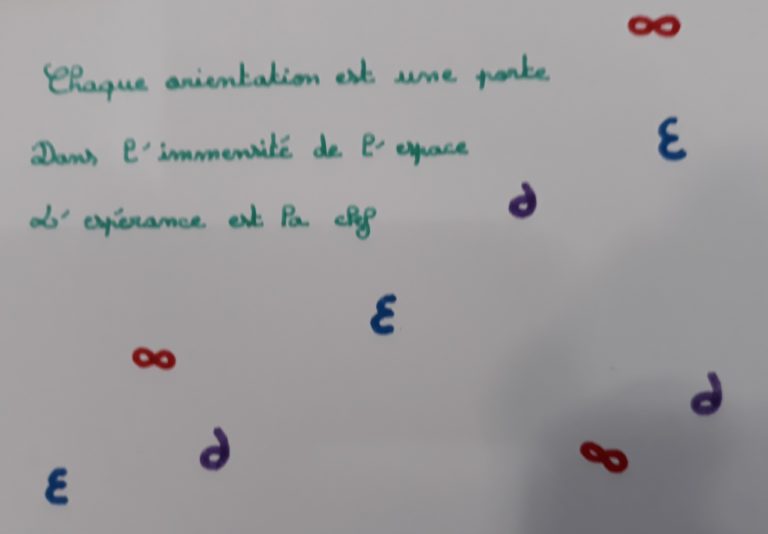 ∞
Chaque orientation est une porte
Dans l'immensité de l'espace
ε
L'espérance est la clef
∂
ε
∞
∂
∂
∞
ε